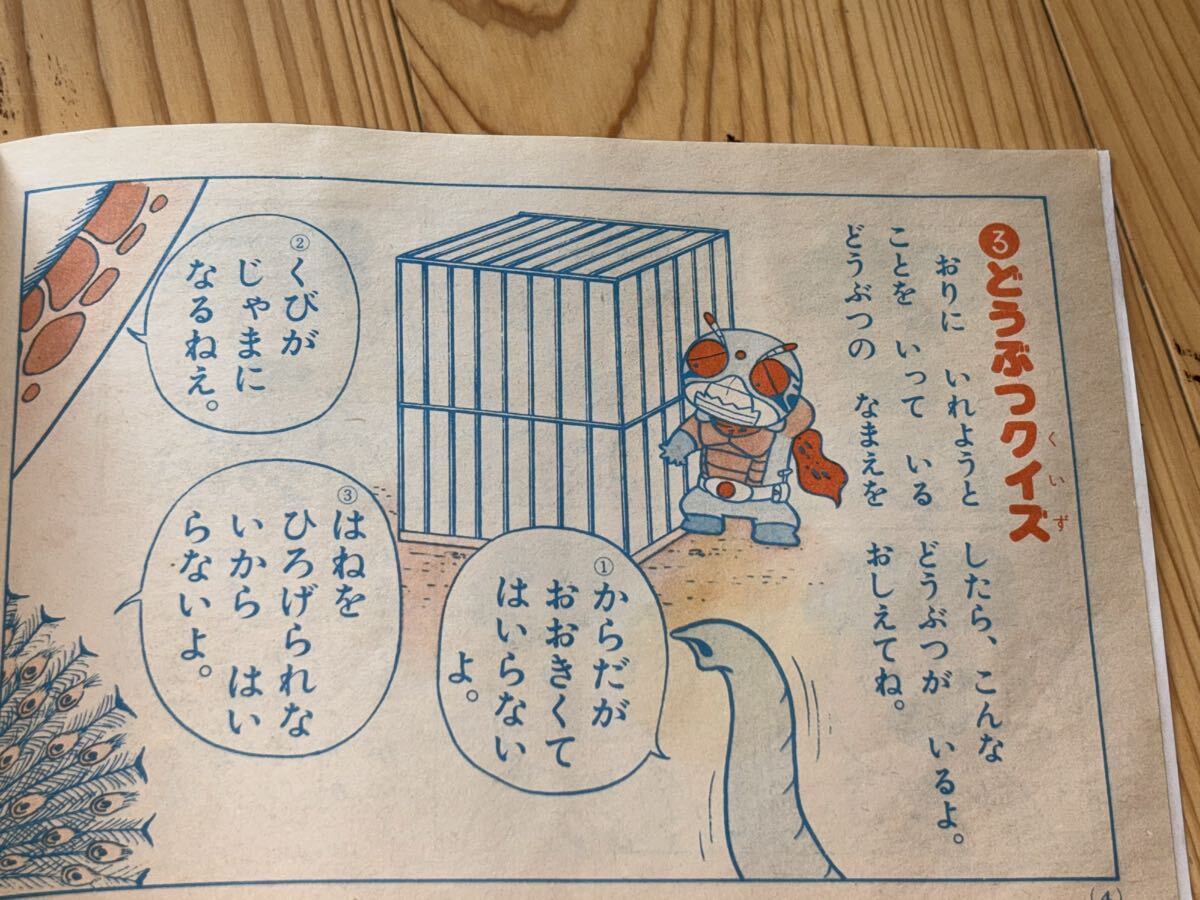 3 どうぶつクイズ
くいず
おりに いれようと したら、こんな
ことを いって いる どうぶつが いるよ。
どうぶつの なまえを おしえてね。
①からだが
おおきくて
はいらない
よ。
②くびが
じゃまに
なるねえ。
③はねを
ひろげられな
いから はい
らないよ。
(4)